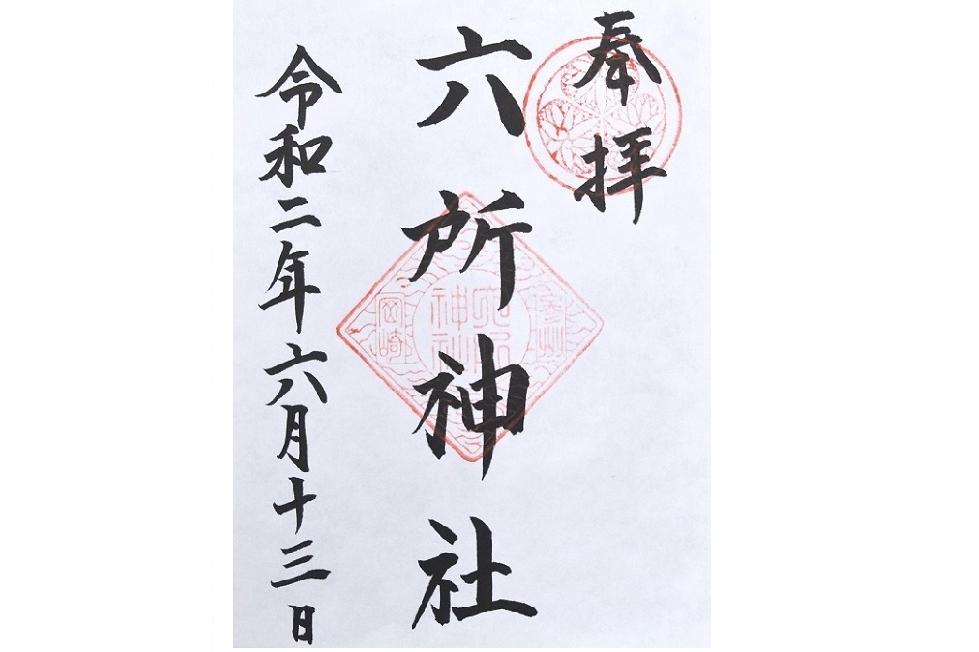 奉拝
六所神社
令和二年六月十三日
岡崎
六所神社